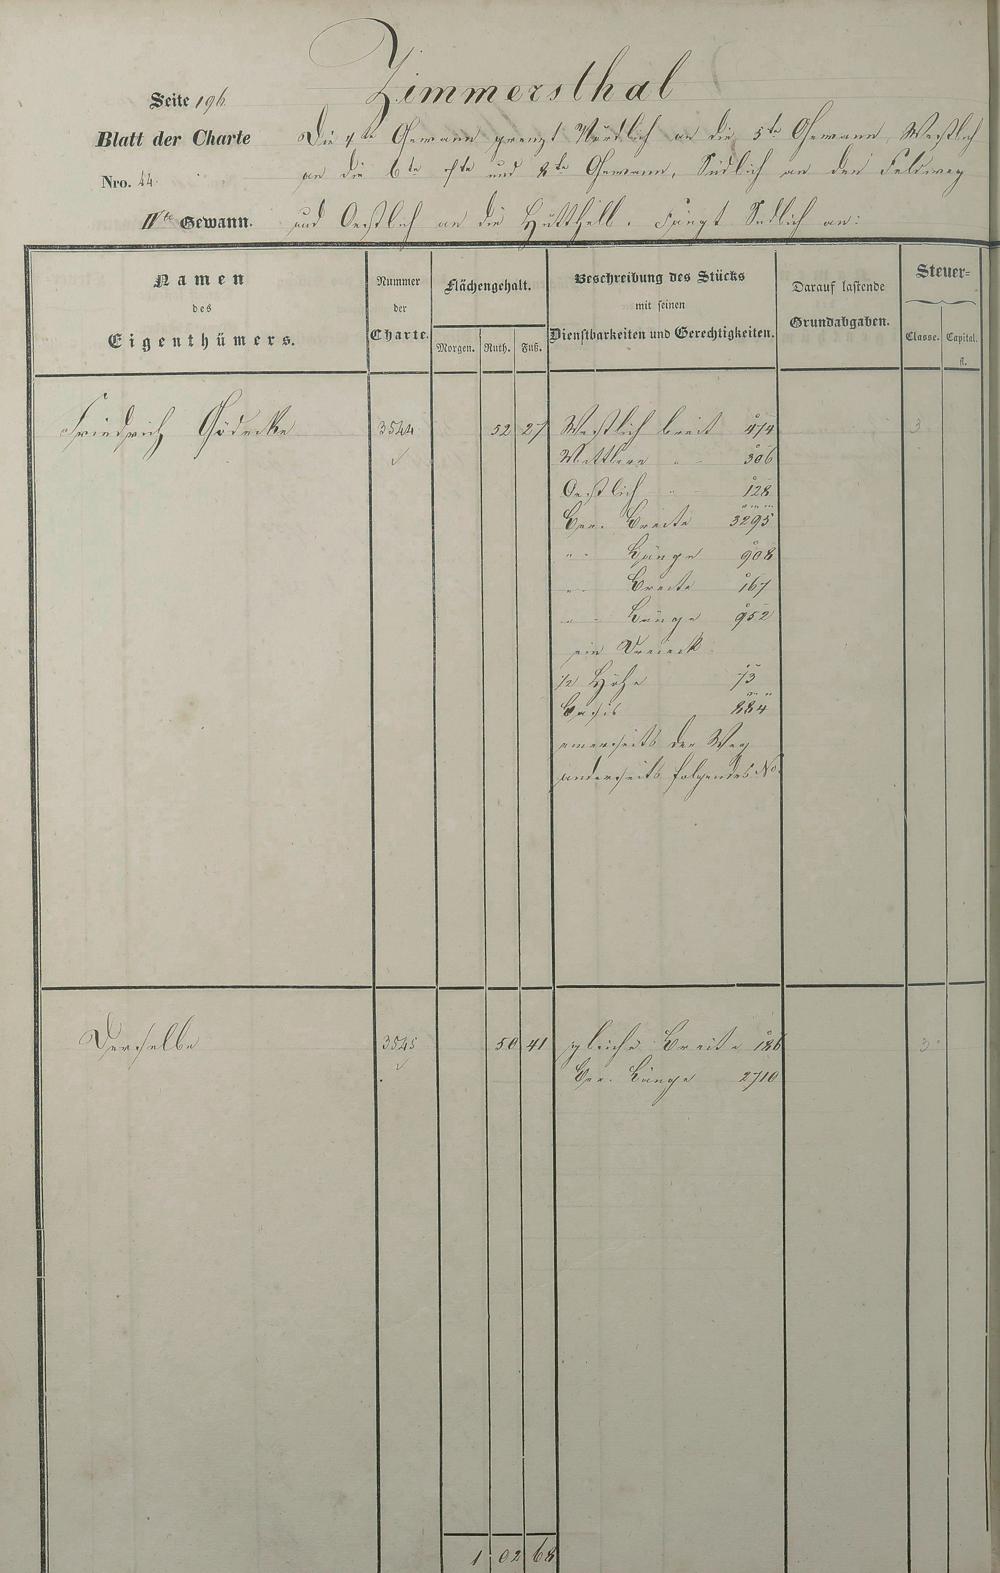 Zimmersthal
Seite 196
Blatt der Charte
Nro. 44.
IVte Gewann.
Die 4te Gewann grenzt Nördlich an die 5te Gewann, Westlich
an die 6te 7te und 8te Gewann, Südlich an den Feldweg
und Oestlich an die Hutthell. Fängt Südlich an:
Namen
des
Eigenthümers.
Nummer
der
Charte.
Flächengehalt.
Morgen. Ruth. Fuß.
Beschreibung des Stücks
mit seinen
Dienstbarkeiten und Gerechtigkeiten.
Darauf lastende
Grundabgaben.
Steuer=
Classe. Capital.
fl.
Friedrich Gödecke 3544 52 27 Westlich breit 474 3
Mittlere " 306
Oestlich " 128
Ber. Breite 3295
" Länge 908
" Breite 167
" Länge 952
ein Dreieck
1/2 Höhe 73
Basis 884
einerseits der Weg
anderseits folgendes No.
Derselbe 3545 50 41 gleiche Breite 186 3
Ber. Länge 2710
1 02 68